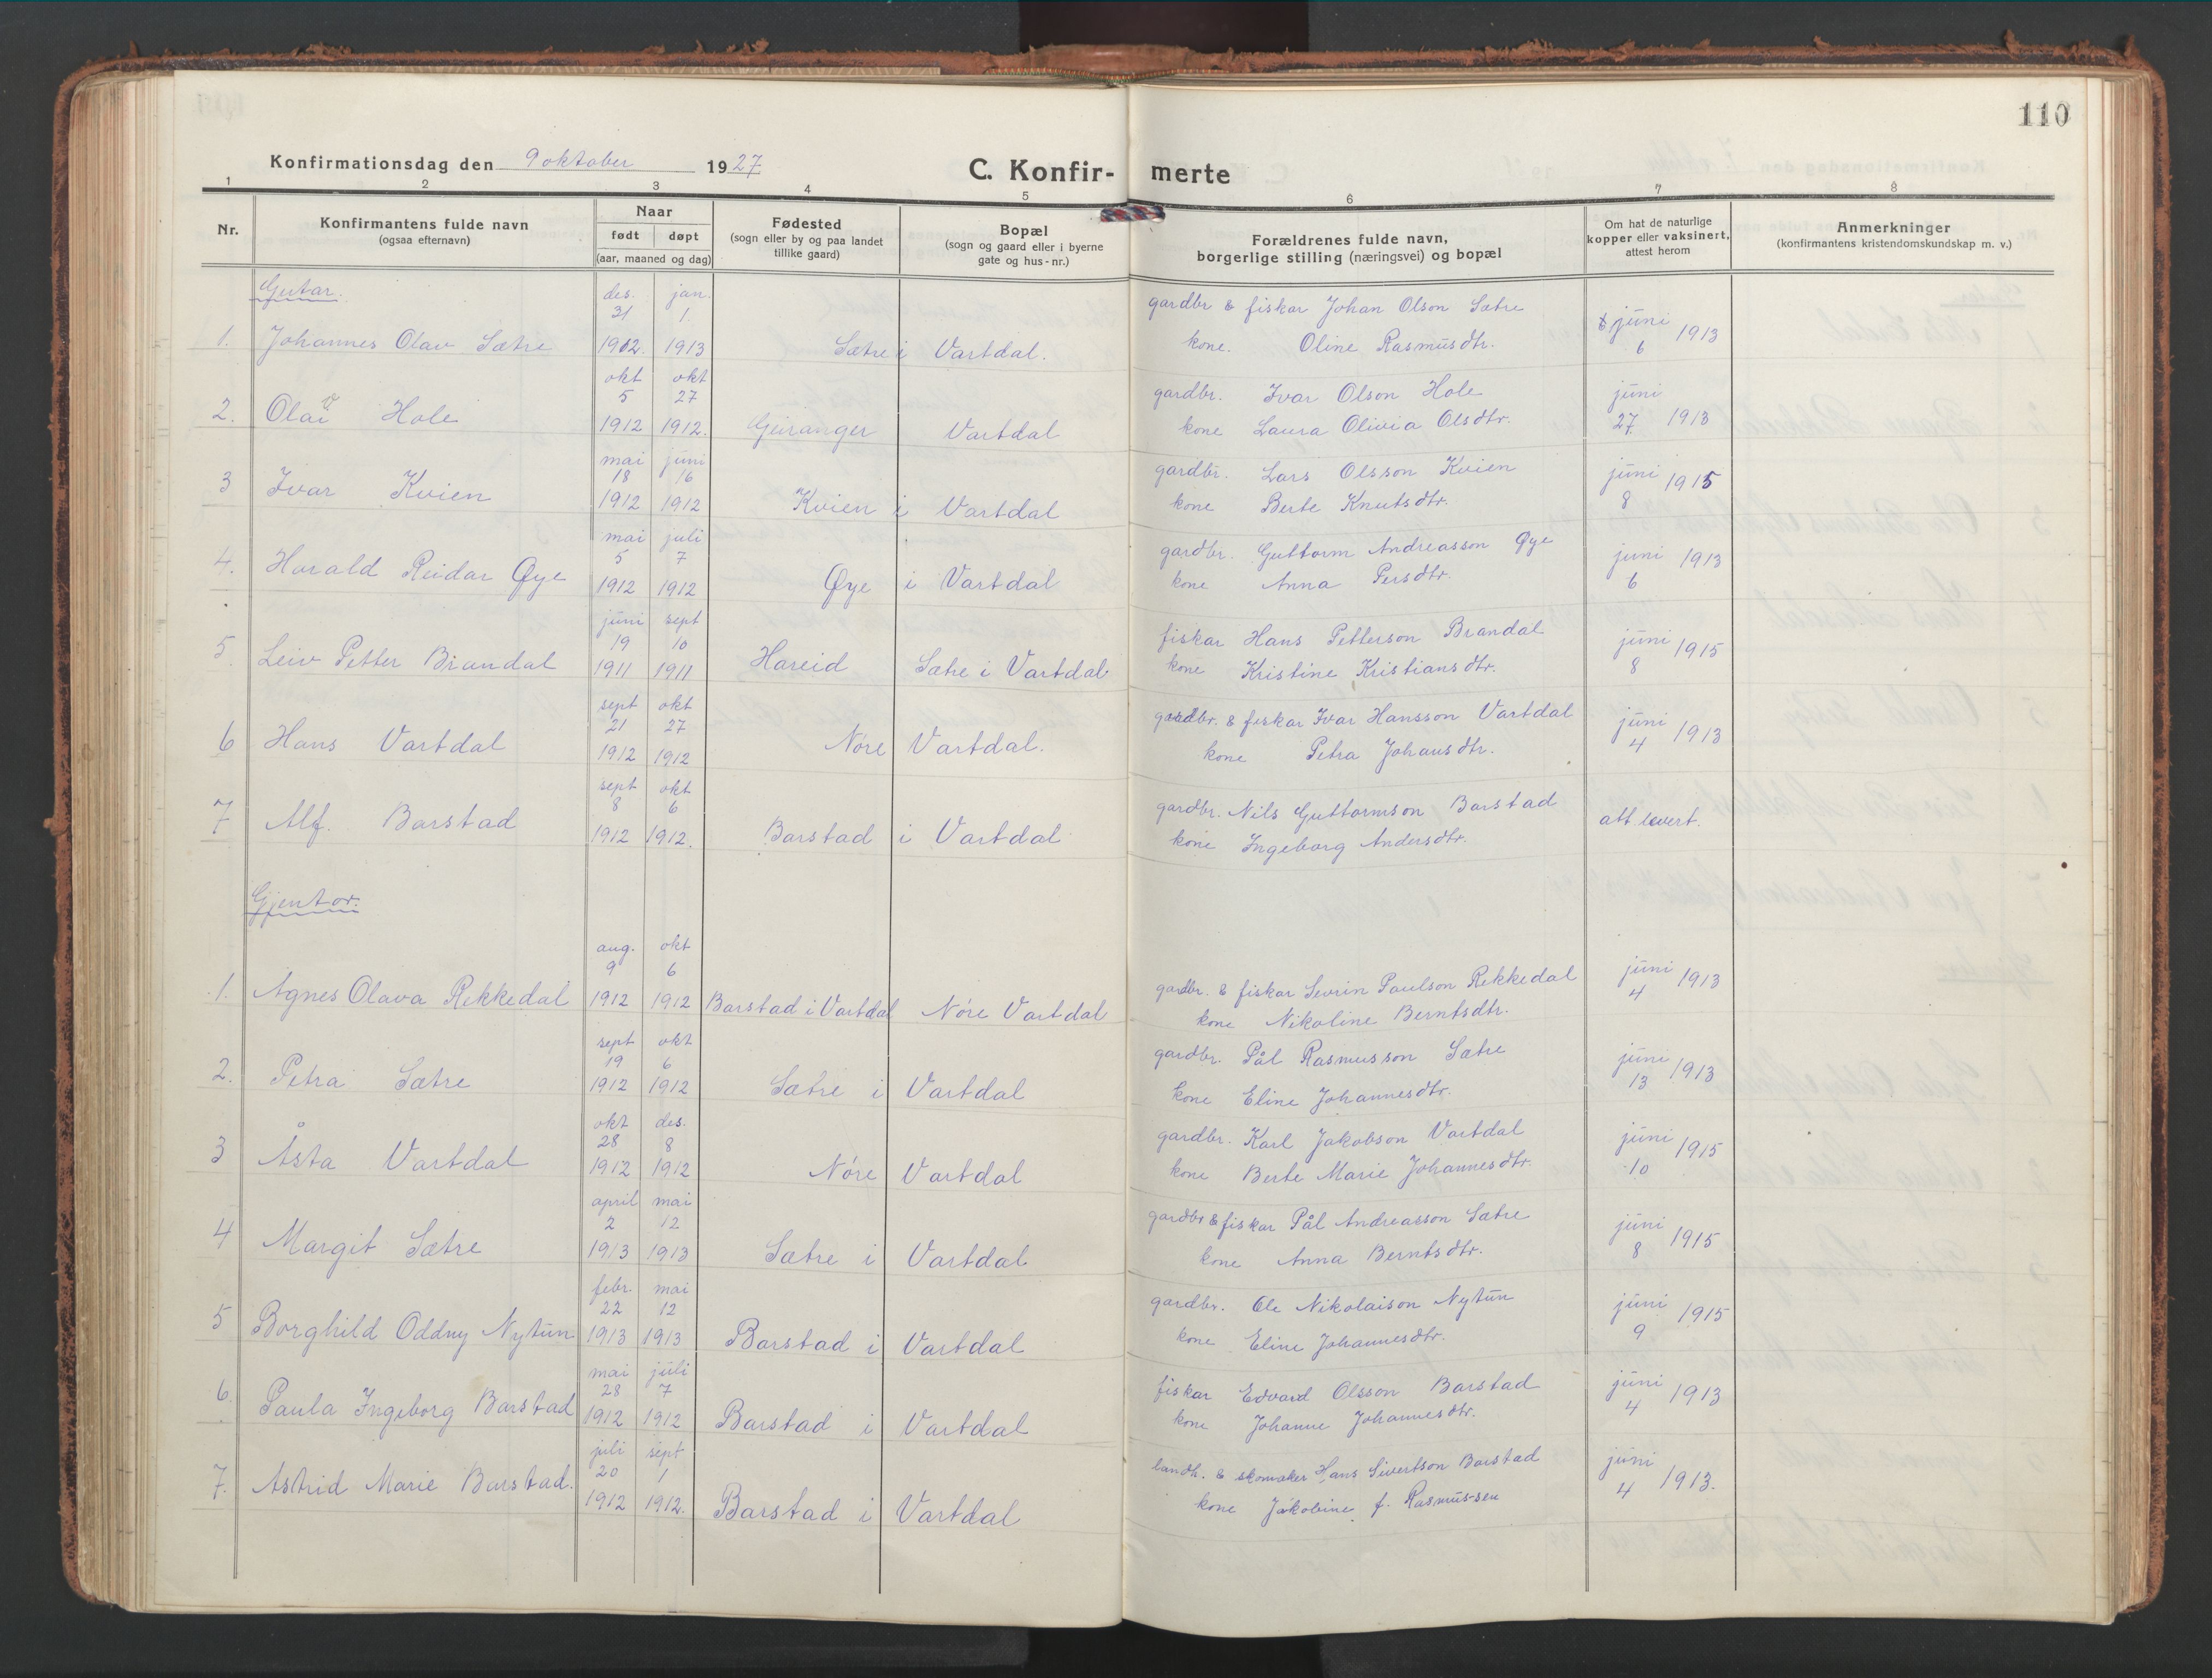 110
Konfirmationsdag den 9 oktober 1927
C. Konfir- merte
1 2 3 4 5 6 7 8
Nr.
Konfirmantens fulde navn
(ogsaa efternavn)
Naar
født døpt
(aar, maaned og dag)
Fødested
(sogn eller by og paa landet
tillike gaard)
Bopæl
(sogn og gaard eller i byerne
gate og hus-nr.)
Forældrenes fulde navn,
borgerlige stilling (næringsvei) og bopæl
Om hat de naturlige
kopper eller vaksinert,
attest herom
Anmerkninger
(konfirmantens kristendomskundskap m. v.)
Gutar.
des. jan. gardbr & fiskar Johan Olson Sætre
31 1. juni 1913
1. Johannes Olav Sætre 1912. 1913 Sætre i Vartdal. kone. Oline Rasmusdtr. 6
okt okt gardbr. Ivar Olson Hole juni
5 27
2. Olav Hole 1912 1912. Geiranger Vartdal kone Laura Olivia Olsdtr. 27. 1913
mai juni gardbr. Lars Olsson Kvien juni 1915
18 16
3 Ivar Kvien 1912 1912 Kvien i Vartdal kone Berte Knutsdtr. 8
mai juli gardbr. Guttorm Andreasson Øye juni 1913
5 7
4. Harald Reidar Øye 1912 1912 Øye i Vartdal kone Anna Persdtr. 6
juni sept fiskar Hans Petterson Brandal juni 1915
19 10
5. Leiv Petter Brandal 1911 1911 Hareid Sætre i Vartdal kone Kristine Kristiansdtr. 8
sept okt gardbr. & fiskar Ivar Hansson Vartdal juni
21 27
6 Hans Vartdal 1912 1912 Nøre Vartdal. kone Petra Johansdtr. 4 1913
sept okt gardbr. Nils Guttormson Barstad
8 6 att. levert.
7 Alf. Barstad 1912 1912. Barstad i Vartdal kone Ingeborg Andersdtr.
Gjentor.
aug. okt
9 6 gardbr. & fiskar Sevrin Paulson Rekkedal juni 1913
1. Agnes Olava Rekkedal 1912 1912 Barstad i Vartdal Nøre Vartdal kone Nikoline Berntsdtr. 4
sept okt gardbr. Pål Rasmusson Sætre juni
19 6
2. Petra Sætre 1912 1912 Sætre i Vartdal kone Eline Johannesdtr. 13 1913
okt des. gardbr. Karl Jakobson Vartdal juni 1915
28 8
3 Åsta Vartdal 1912 1912 Nøre Vartdal kone Berte Marie Johannesdtr. 10
april mai gardbr & fiskar Pål Andreasson Sætre juni
2 12
4 Margit Sætre 1913 1913 Sætre i Vartdal kone Anna Berntsdtr. 8 1915
febr. mai gardbr. Ole Nikolaison Nytun juni 1915
22 12
5 Borghild Oddny Nytun 1913 1913 Barstad i Vartdal kone Eline Johannesdtr. 9
mai juli fiskar Edvard Olsson Barstad juni
28 7
6. Paula Ingeborg Barstad 1912 1912 Barstad i Vartdal kone Johanne Johannesdtr. 4 1913
juli sept landh. & skomaker Hans Sivertson Barstad juni
20 1
7. Astrid Marie Barstad. 1912 1912. Barstad i Vartdal kone Jakobine f. Rasmussen 4 1913.